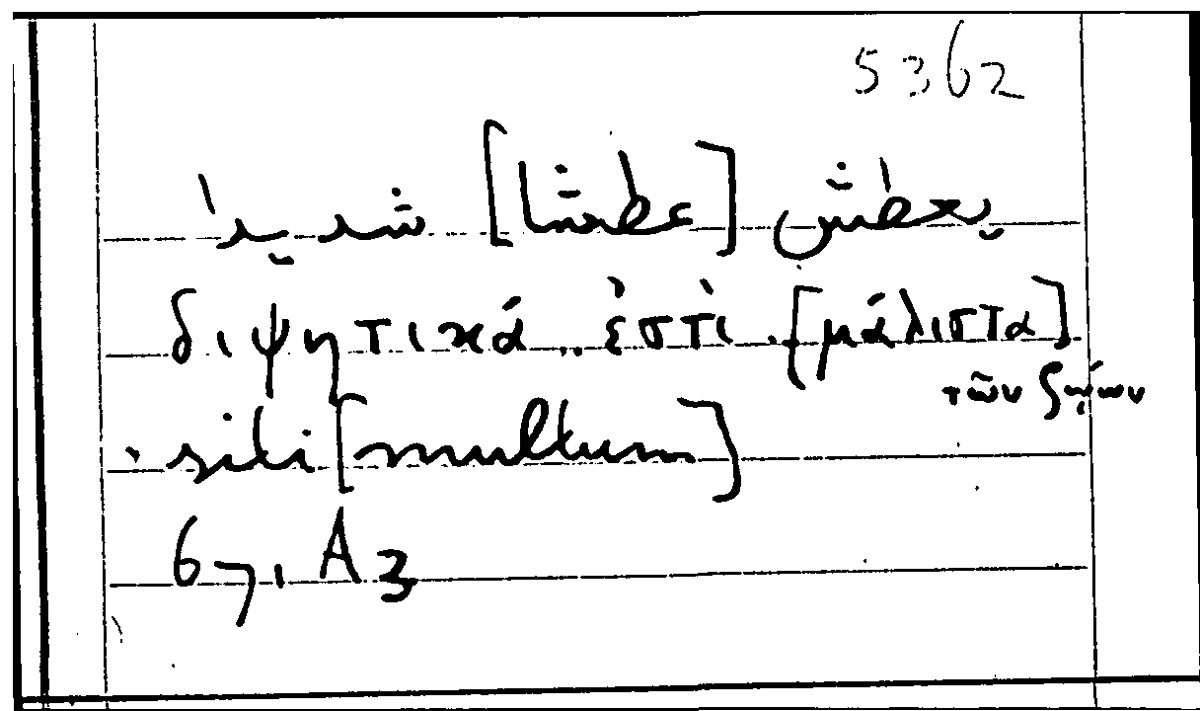 5362
يعطش [عطشا] شديدا
διψητικά .. ἐστὶ . [μάλιστα]
τῶν ζῴων
siti [multum]
671 A3